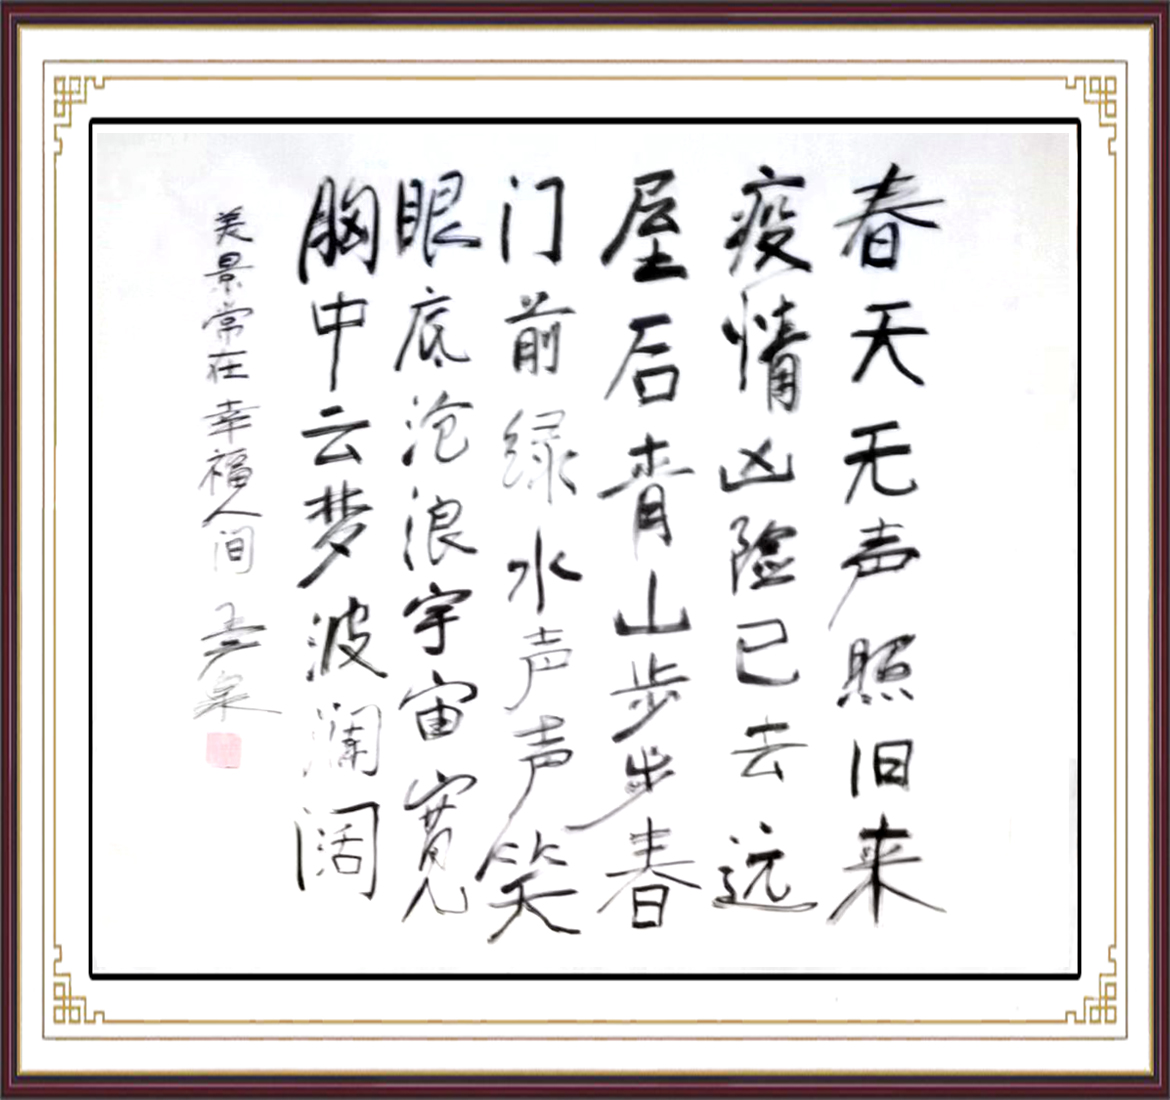 春天无声照旧来
疫情凶险已去远
屋后青山步步春
门前绿水声声笑
眼底沧浪宇宙宽
胸中云梦波澜阔
美景常在幸福人间